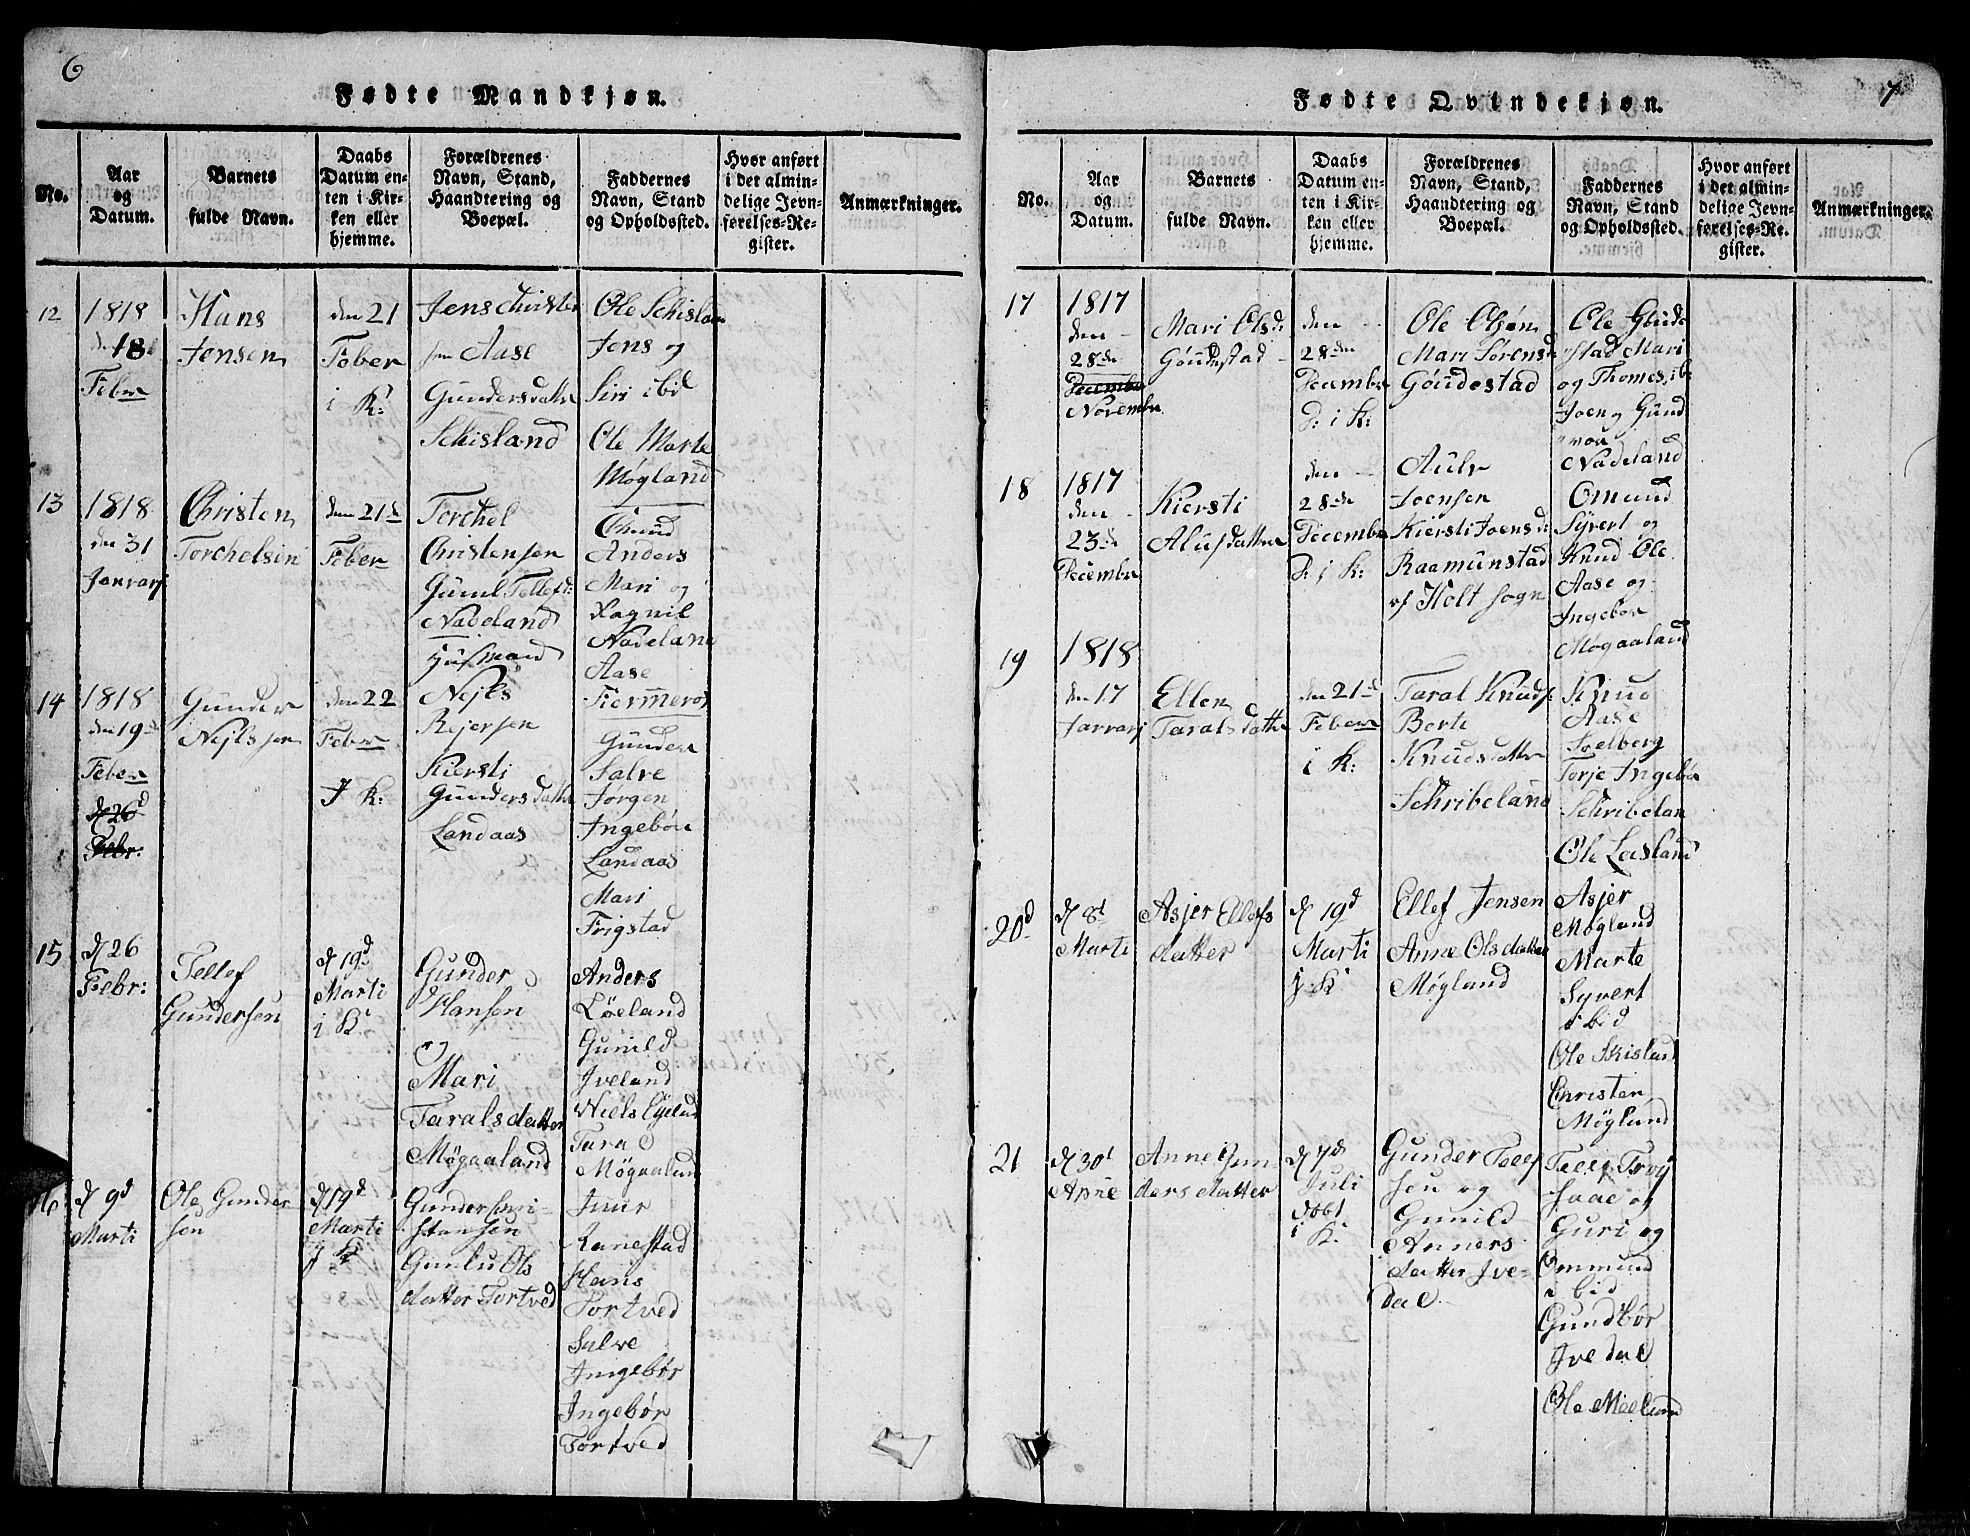 6
Fødte Mandkjøn.
No.
Aar
og
Datum.
Barnets
fulde Navn.
Daabs
Datum en-
ten i Kir-
ken eller
hjemme.
Forældrenes
Navn, Stand,
Haandtering og
Boepæl.
Faddernes
Navn, Stand
og Opholdssted.
Hvor anført
i det almin-
delige Jevn-
førelses-Re-
gister.
Anmærkninger.
12
1818
den 18
Feber
Hans
Jensen
den 21
Feber
i K:
Jens Christen
sen Aase
Gundersdatter
Schisland
Ole Schisland
Jens og
Siri ibid
Ole Marte
Møgland
13
1818
den 31
Janvarj
Christen
Torchelsen
den 21d
Feber
Torchel
Christensen
Gunil Tellefsd:
Nadeland
Husmand
Omund
Anders
Mari og
Ragnil
Nadeland
Aase
14
1818
den 19d
Feber
d 26d
Febr:
Gunder
Nejlssen
den 22
Feber
J K:
Nejls
Rejersen
Kiersti
Gundersdatter
Landaas
Gunder
Salve
Jørgen
Ingebör
Landaas
Mari
Frigstad
15
d 26
Febr:
Tellef
Gundersen
d 19d
Marti
i K:
Gunder
Hansen
og
Mari
Taralsdatter
Møgaaland
Anders
Løeland
Gunild
Iveland
Niels
Tara
Møgaalan
16
d 9d
Marti
Ole Gunder
sen
d 19d
Marti
j K
Gunder
Gunlu Ols
datter Tortved
Hans
Tortved
Salve
Ingebør
Ingebør
Tortved
7
Fødte Qvindekjøn.
No.
Aar
og
Datum.
Barnets
fulde Navn.
Daabs
Datum en-
ten i Kir-
ken eller
hjemme.
Forældrenes
Navn, Stand,
Haandtering og
Boepæl.
Faddernes
Navn, Stand
og Opholdssted.
Hvor anført
i det almin-
delige Jevn-
førelses-Re-
gister.
Anmærkninger.
17
1817
den
28de
Decembr
Novembr
Mari Olsd:
Göudestad
den
28de
Decembr
D: i K:
Ole Olsøn
Mari Sörensd
Göudestad
Ole Goude
stad Mari
og Thomes, ib:
Joen og Gund
vor
Nadeland
18
1817
den
23de
Decembr
Kiersti
Alufdatter
den
28de
Decembr
D. i K:
Aulv
Joensen
Kiersti Joensd:
Raamunstad
af Holt sogn
Omund
Syvert og
Knud Ole
Aase og
Ingebör
Møgaaland
19
1818
den 17
Janvarj
Ellen
Taralsdatter
den 21d
Feber
i K:
Taral Knuds
Berte
Knudsdatter
Schribeland
Knud
Aase
Soelberg
Torje Ingebör
Schribelan
Ole Lasland
20d
d 8d
Marti
Asjer Ellefs
datter
d 19d
Marti
j K
Ellef Jensen
Anne Olsdatter
Møgland
Asjer
Møgland
Marte
Syvert
ibid
Ole Skisland
Christen
Møglund
21
d 30d
Anne Gun
dersdatter
d 7d
Juli
døbt
i K:
Gunder Tellef
sen og
Gunild
Anners
datter Ive-
dal
Guri og
Ommund
ibid
Gundbør
Ivedal
Ole